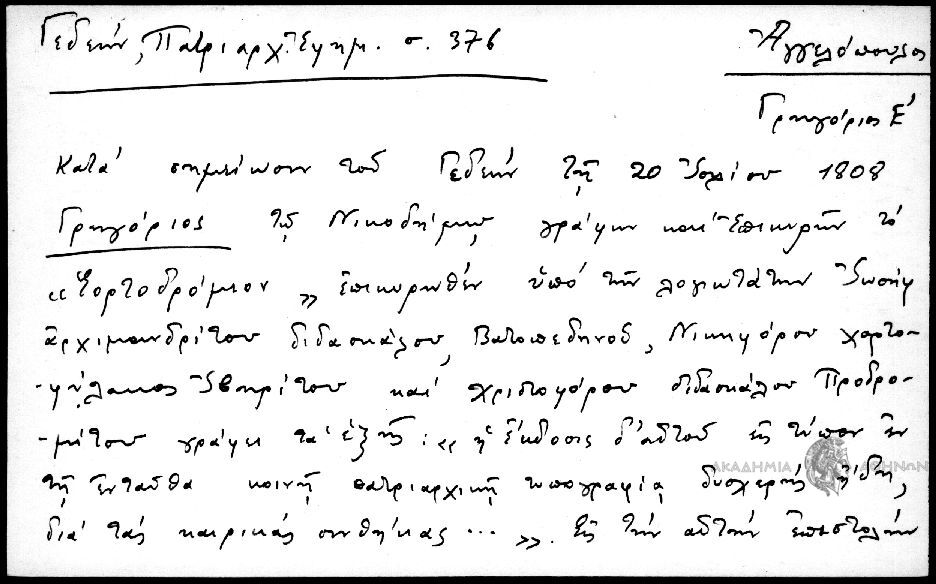 Γεδεών, Πατριαρχ. Ἐφημ. σ. 376
Ἀγγελόπουλος
Γρηγόριος Ε΄
Κατά σημείωσιν τοῦ Γεδεών τῇ 20 Ἰουλίου 1808
Γρηγόριος τῷ Νικοδήμῳ γράφων καί ἐπικυρῶν τό
«Ἑορτοδρόμιον» ἐπικυρωθέν ὑπό τῶν λογιωτάτων Ἰωσήφ
ἀρχιμανδρίτου διδασκάλου, Βατοπεδηνοῦ, Νικηφόρου χαρτο-
-φύλακος Ἰβηρίτου καί Χριστοφόρου διδασκάλου Προδρο-
-μίτου γράφει τά ἑξῆς: «ἡ ἔκδοσις δ' αὐτοῦ εἰς τύπον ἐν
τῇ ἐνταῦθα κοινῇ πατριαρχικῇ τυπογραφίᾳ δυσχερής ἤδη,
διά τάς καιρικάς συνθήκας ...». Εἰς τήν αὐτήν ἐπιστολήν
ΑΚΑΔΗΜΙΑ ΑΘΗΝΩΝ